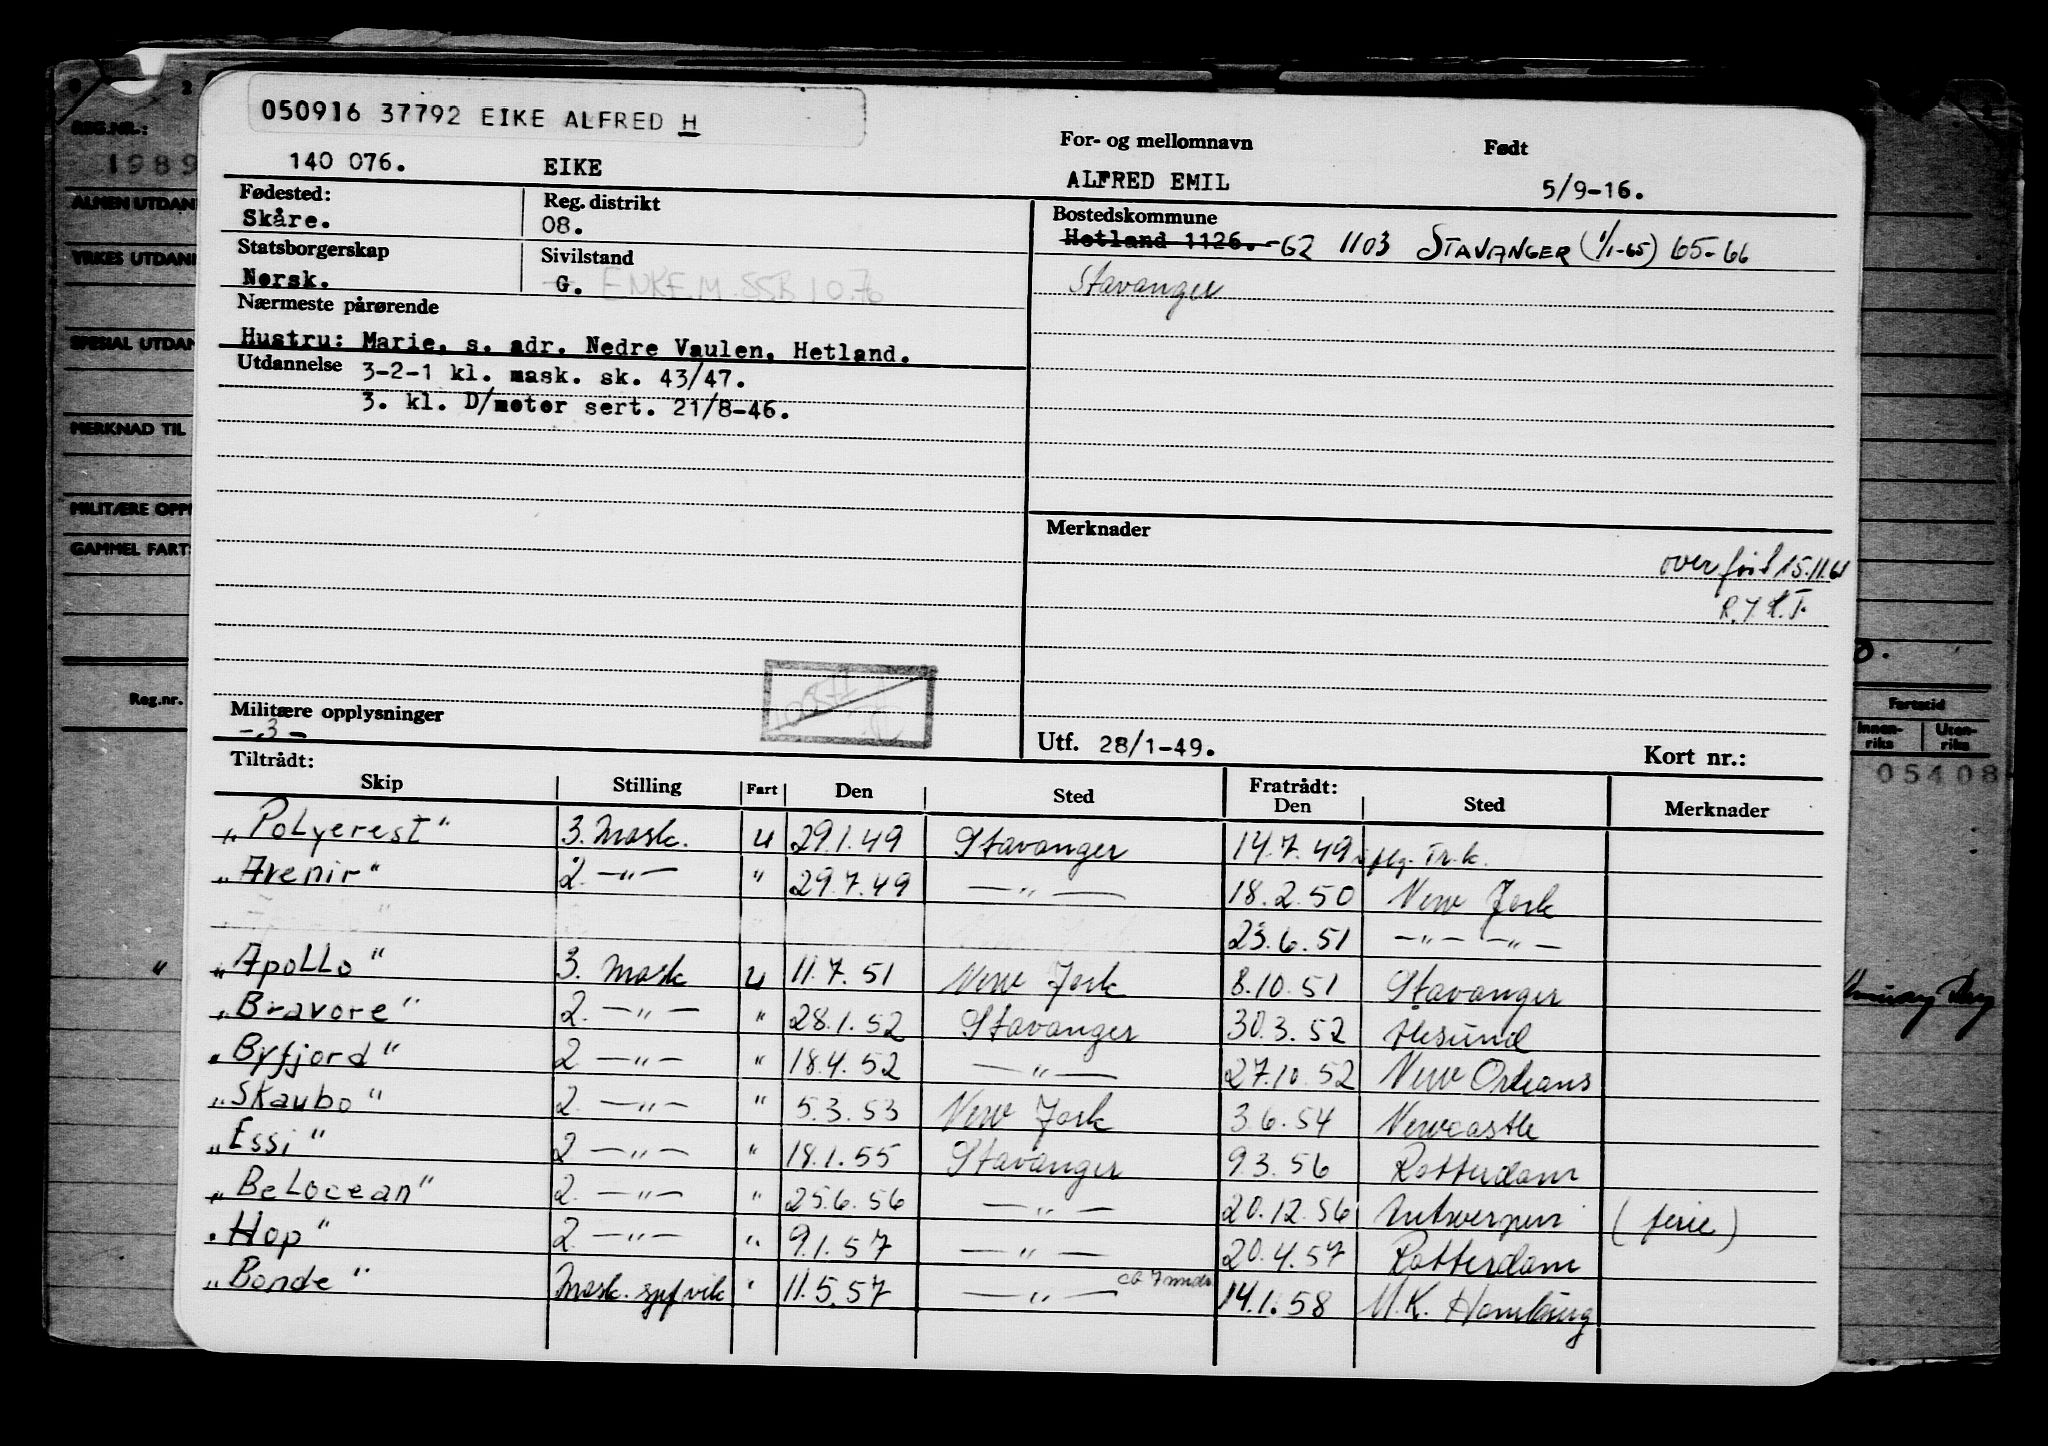 050916 37792 EIKE ALFRED H
140 076. EIKE
For- og mellomnavn Født
ALFRED EMIL 5/9-16.
Fødested: Reg. distrikt
Skåre. 08.
Statsborgerskap Sivilstand
Norsk. G. ENKEM SSB 10.76
Nærmeste pårørende
Hustru: Marie, s. adr. Nedre Vaulen, Hetland.
Utdannelse 3-2-1 kl. mask. sk. 43/47.
3. kl. D/motor sert. 21/8-46.
Bostedskommune
Hetland 1126. -62 1103 STAVANGER (1/1-65) 65-66
Stavanger
Merknader
overført 15.11.61
Militære opplysninger
-3-
Utf. 28/1-49. Kort nr.:
Tiltrådt: Fratrådt:
Skip Stilling Fart Den Sted Den Sted Merknader
"Polycrest" 3. mask. u 29.1.49 Stavanger 14.7.49
"Avenir" 2. —"— " 29.7.49 —"— 18.2.50 New York
23.6.51 —"— —"—
"Apollo" 3. mask u 11.7.51 New York 8.10.51 Stavanger
"Bravore" 2. —"— " 28.1.52 Stavanger 30.3.52
"Byfjord" 2 —"— " 18.4.52 —"— 27.10.52 New Orleans
"Skaubo" 2. —"— " 5.3.53 New York 3.6.54 Newcastle
"Essi" 2 —"— " 18.1.55 Stavanger 9.3.56 Rotterdam
"Belocean" 2. —"— " 25.6.56 —"— 20.12.56 Antwerpen (ferie)
"Hop" 2. —"— " 9.1.57 —"— 20.4.57 Rotterdam
"Bonde" Mask. " 11.5.57 —"— ca 7 mndr 14.1.58 M.K. Hamburg
REG.NR.:
1989
ALMEN UTDAN
YRKES UTDAN
SPESIAL UTDAN
MERKNAD TIL
MILITÆRE OPP
GAMMEL FART
Reg.nr.
Fartstid
Innen-riks Uten-riks
05408